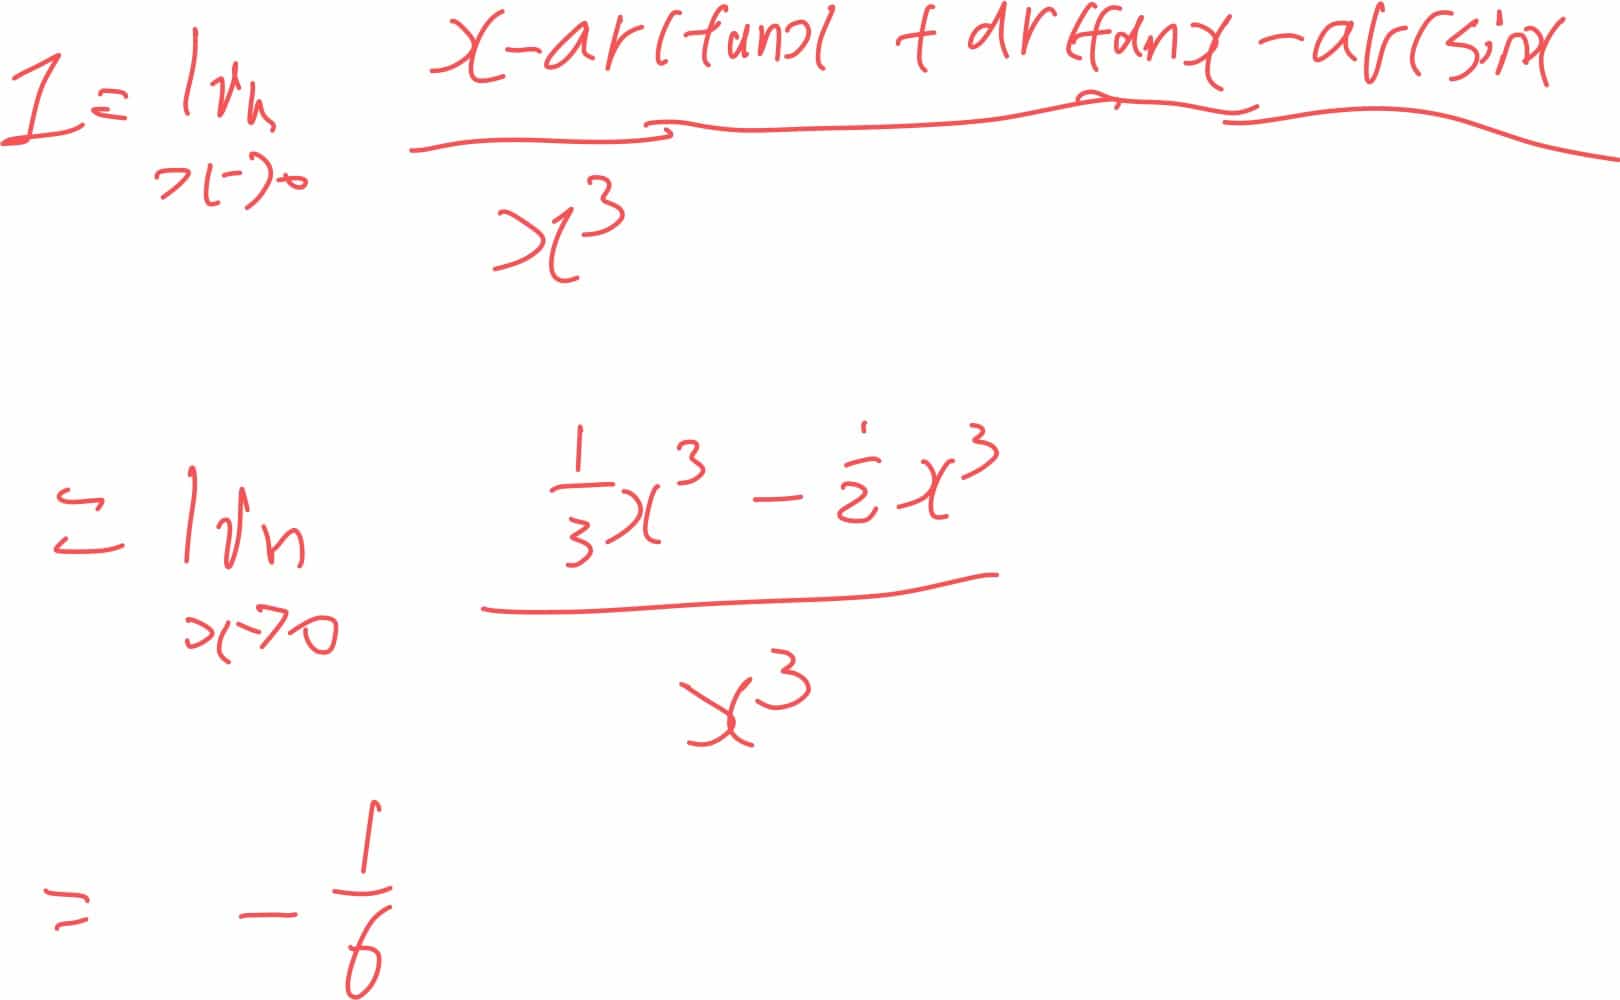 I = lim x→0 (x - arctanx + arctanx - arcsinx) / x³
= lim x→0 (1/3 x³ - 1/2 x³) / x³
= - 1/6